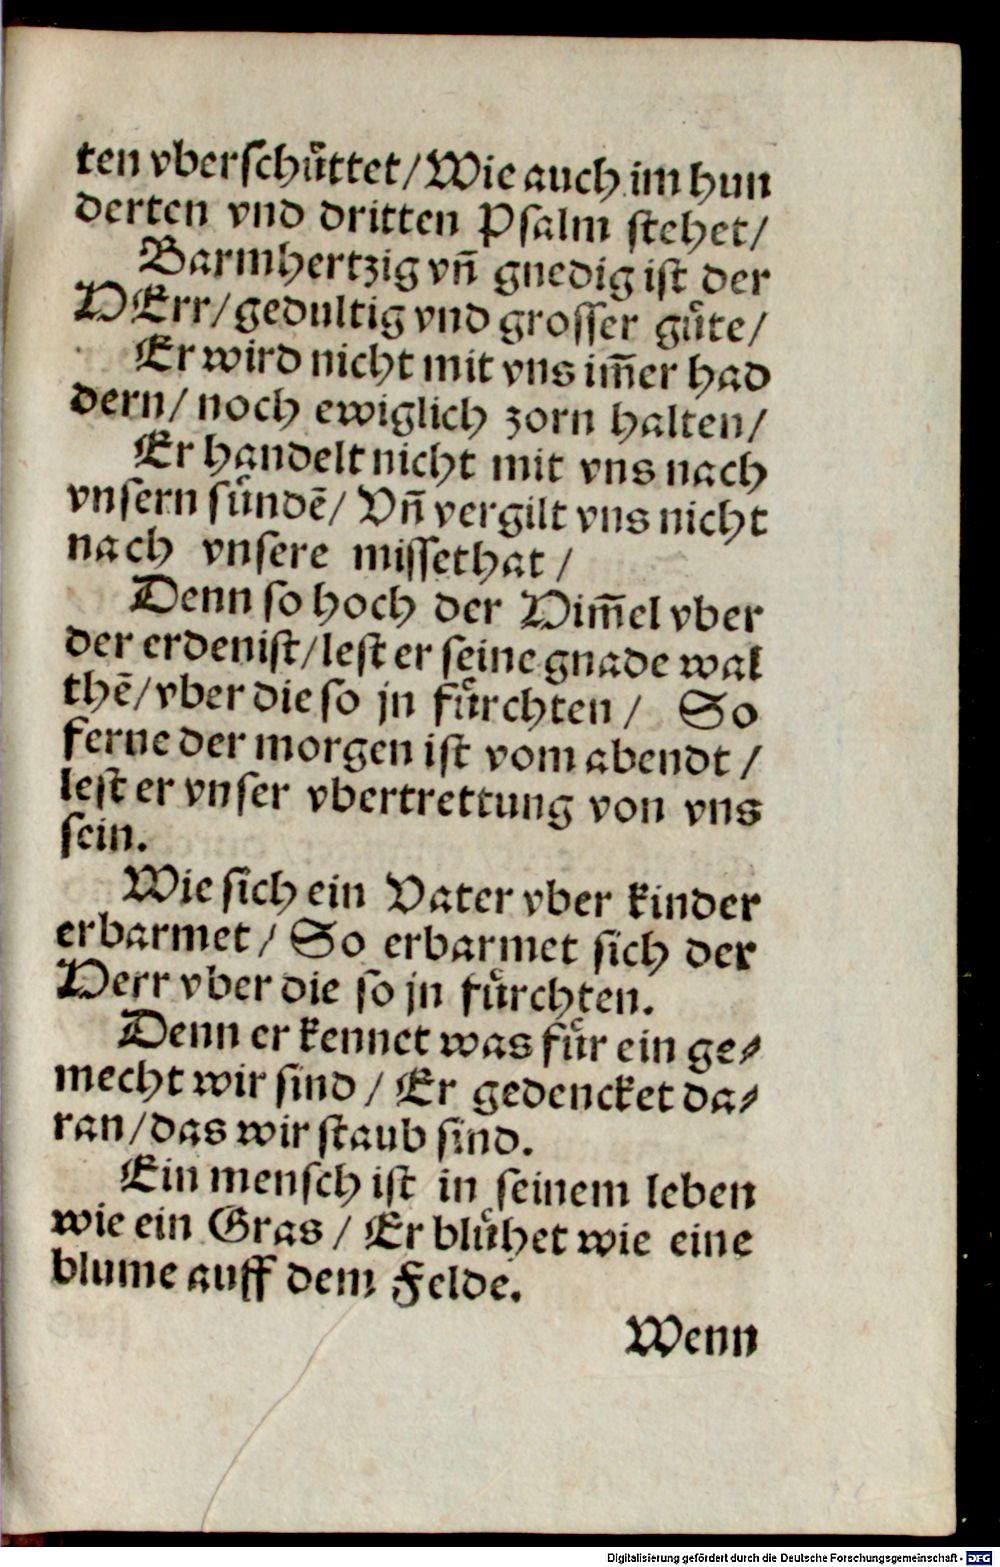 ten vberſchuͤttet/ Wie auch im hun
derten vnd dritten Pſalm ſtehet/
Barmhertzig vñ gnedig iſt der
HErr/ gedultig vnd groſſer guͤte/
Er wird nicht mit vns im̃er had
dern/ noch ewiglich zorn halten/
Er handelt nicht mit vns nach
vnſern ſuͤndẽ/ Vñ vergilt vns nicht
nach vnſere miſſethat /
Denn ſo hoch der Him̃el vber
der erden iſt/ leſt er ſeine gnade wal
thẽ/ vber die ſo jn fuͤrchten / So
ferne der morgen iſt vom abendt /
leſt er vnſer vbertrettung von vns
ſein.
Wie ſich ein Vater vber kinder
erbarmet / So erbarmet ſich der
Herr vber die ſo jn fuͤrchten.
Denn er kennet was fuͤr ein ge⸗
mecht wir ſind / Er gedencket da⸗
ran/ das wir ſtaub ſind.
Ein menſch iſt in ſeinem leben
wie ein Gras / Er bluͤhet wie eine
blume auff dem Felde.
Wenn
Digitalisierung gefördert durch die Deutsche Forschungsgemeinschaft - DFG